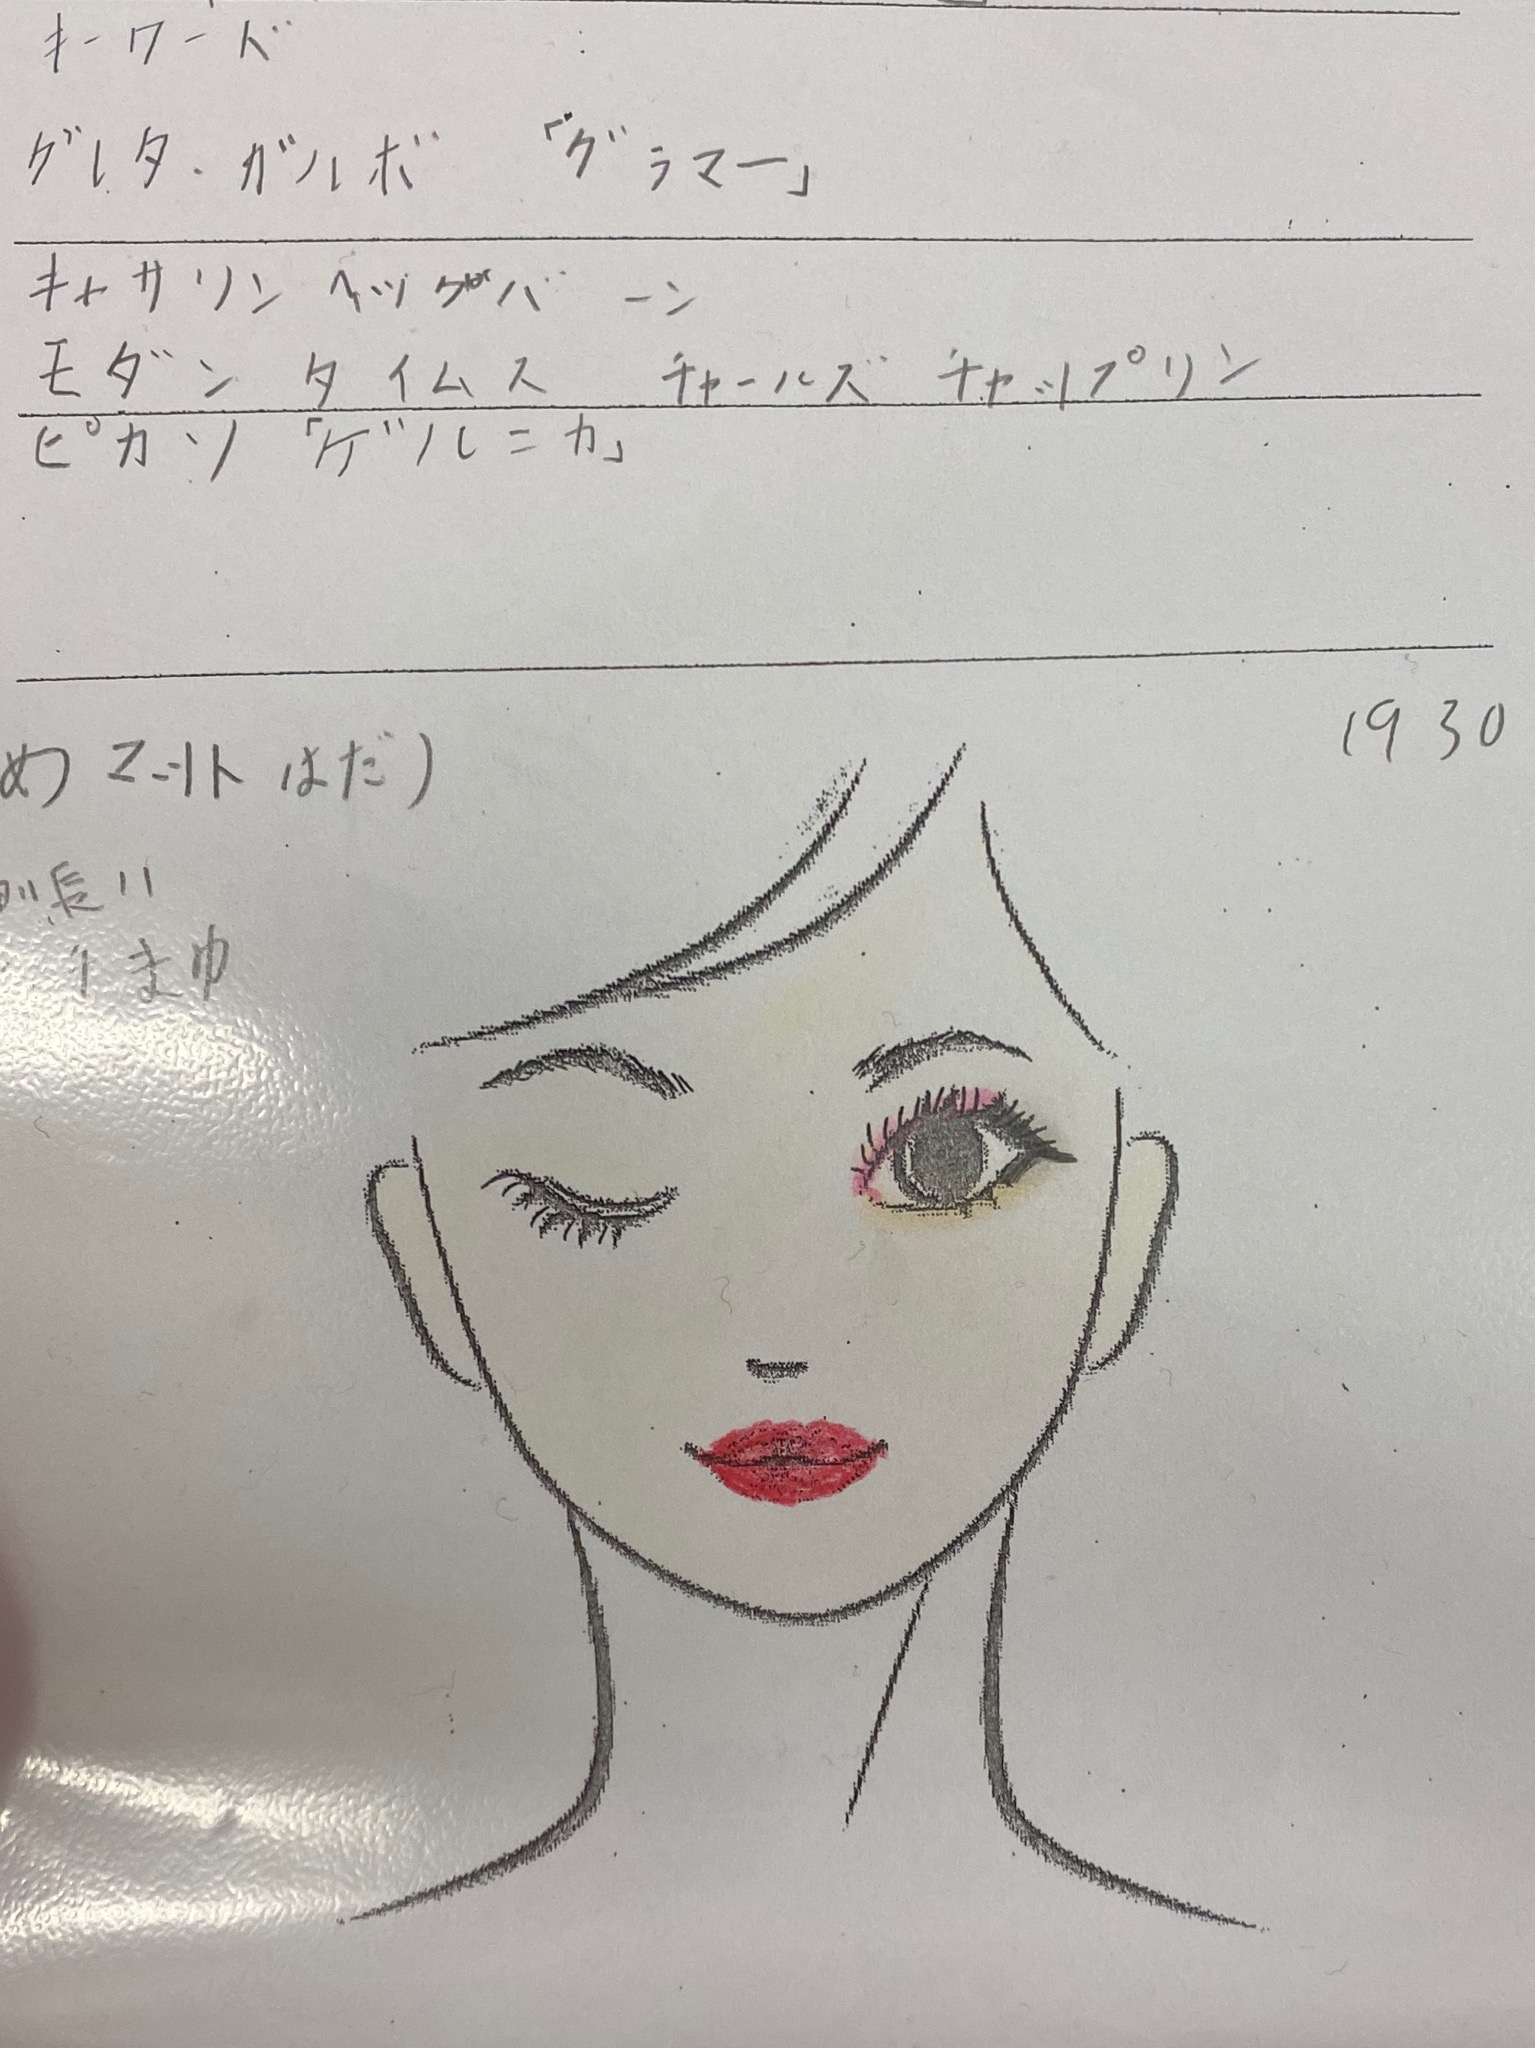 キーワード
グレタ・ガルボ 「グラマー」
キャサリン ヘップバーン
モダン タイムス チャールズ チャップリン
ピカソ 「ゲルニカ」
1930
め マットはだ)
長い
まゆ